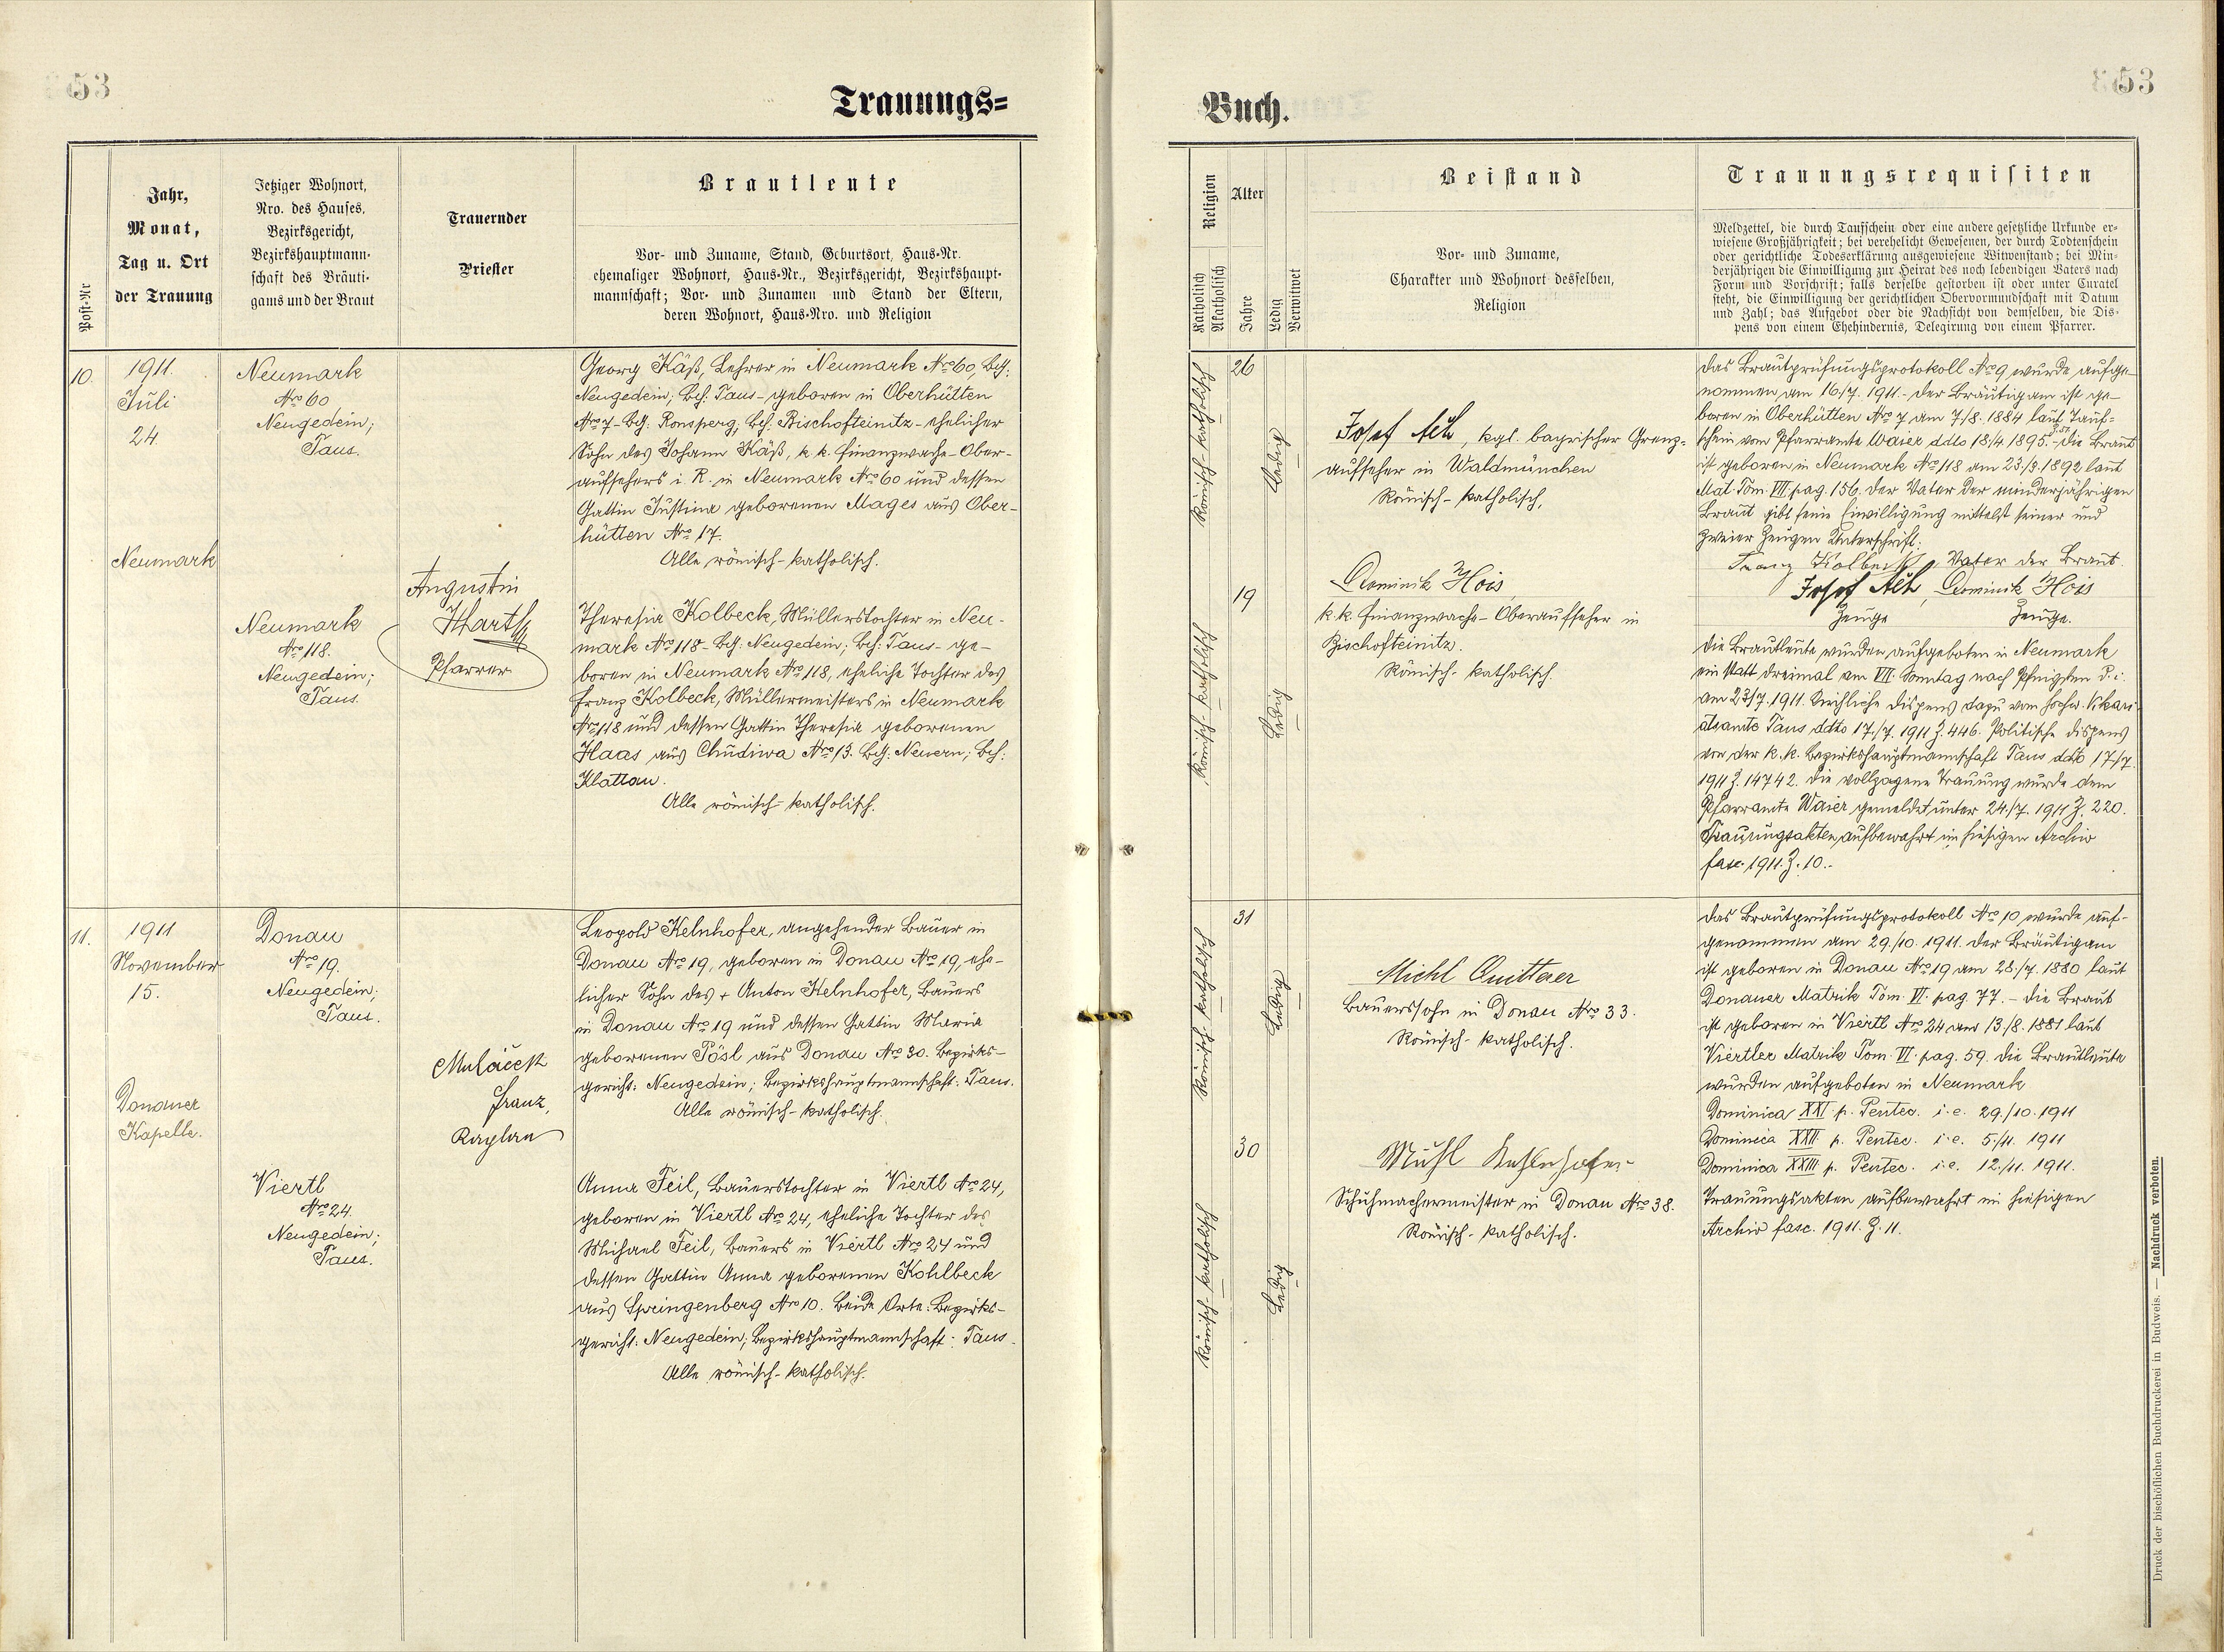 53
Trauungs=
Post-Nr
Jahr,
Monat,
Tag u. Ort
der Trauung
Jetziger Wohnort,
Nro. des Hauses,
Bezirksgericht,
Bezirkshauptmann-
schaft des Bräuti-
gams und der Braut
Trauernder
Priester
Brautleute
Vor- und Zuname, Stand, Geburtsort, Haus-Nr.
ehemaliger Wohnort, Haus-Nr., Bezirksgericht, Bezirkshaupt-
mannschaft; Vor- und Zunamen und Stand der Eltern,
deren Wohnort, Haus-Nro. und Religion
10.
1911.
Juli
24
Neumark
Neumark
Nro 60
Neugedein;
Taus.
Neumark
Nro 118.
Neugedein;
Taus.
Augustin
Hartl
Pfarrer
Georg Käß, Lehrer in Neumark Nro 60, Bg:
Neugedein; Bh: Taus - geboren in Oberhütten
Nro 7 - Bg: Ronsperg; Bh: Bischofteinitz - ehelicher
Sohn des Johann Käß, k. k. Finanzwache-Ober-
aufsehers i. R. in Neumark Nro 60 und dessen
Gattin Justina geborenen Mages aus Ober-
hütten Nro 17.
Alle römisch-katholisch.
Theresia Kolbeck, Müllerstochter in Neu-
mark Nro 118 - Bg: Neugedein; Bh: Taus - ge-
boren in Neumark Nro 118, eheliche Tochter des
Franz Kolbeck, Müllermeisters in Neumark
Nro 118 und dessen Gattin Theresia geborenen
Haas aus Chudiwa Nro 13. Bg: Neuern; Bh:
Klattau.
Alle römisch-katholisch.
11.
1911
November
15.
Donauer
Kapelle.
Donau
Nro 19.
Neugedein;
Taus.
Viertl
Nro 24.
Neugedein;
Taus.
Mulacek
Franz,
Kaplan
Leopold Kelnhofer, angehender Bauer in
Donau Nro 19, geboren in Donau Nro 19, ehe-
licher Sohn des + Anton Kelnhofer, Bauers
in Donau Nro 19 und dessen Gattin Maria
geborenen Pösl aus Donau Nro 30. Bezirks-
gericht: Neugedein; Bezirkshauptmannschaft: Taus.
Alle römisch-katholisch.
Anna Feil, Bauerstochter in Viertl Nro 24,
geboren in Viertl Nro 24, eheliche Tochter des
Michael Feil, Bauers in Viertl Nro 24 und
dessen Gattin Anna geborenen Kohlbeck
aus Springenberg Nro 10. Beide Orte: Bezirks-
gericht: Neugedein; Bezirkshauptmannschaft: Taus.
Alle römisch-katholisch.
Buch.
53
Religion
Katholisch
Akatholisch
Alter
Jahre
Ledig
Verwitwet
Beistand
Vor- und Zuname,
Charakter und Wohnort desselben,
Religion
Trauungsrequisiten
Meldzettel, die durch Taufschein oder eine andere gesetzliche Urkunde er-
wiesene Großjährigkeit; bei verehelicht Gewesenen, der durch Todtenschein
oder gerichtliche Todeserklärung ausgewiesene Witwenstand; bei Min-
derjährigen die Einwilligung zur Heirat des noch lebendigen Vaters nach
Form und Vorschrift; falls derselbe gestorben ist oder unter Curatel
steht, die Einwilligung der gerichtlichen Obervormundschaft mit Datum
und Zahl; das Aufgebot oder die Nachsicht von demselben, die Dis-
pens von einem Ehehindernis, Delegirung von einem Pfarrer.
Römisch-katholisch
26
Ledig
Josef Alt, kgl. bayrischer Grenz-
aufseher in Waldmünchen
Römisch-katholisch,
Römisch-katholisch
19
Ledig
Dominik Hois,
k. k. Finanzwache-Oberaufseher in
Bischofteinitz.
Römisch-katholisch.
Das Brautprüfungsprotokoll Nro 9 wurde aufge-
nommen am 16./7. 1911. - Der Bräutigam ist ge-
boren in Oberhütten Nro 7 am 7/8. 1884 laut Tauf-
schein vom Pfarramte Waier ddto 18/4 1895. - Die Braut
ist geboren in Neumark Nro 118 am 23./9. 1892 laut
Mat. Tom. VII. pag. 156. Der Vater der minderjährigen
Braut gibt seine Einwilligung mittelst seiner und
zweier Zeugen Unterschrift:
Franz Kolbeck, Vater der Braut.
Josef Alt, Dominik Hois
Zeuge Zeuge.
Die Brautleute wurden aufgeboten in Neumark
ein statt dreimal am VII. Sonntag nach Pfingsten d. i.
am 23/7. 1911. Kirchliche Dispens dazu vom hochw. Vikari-
atsamte Taus ddto 17./7. 1911 Z. 446. Politische Dispens
von der k. k. Bezirkshauptmannschaft Taus ddto 17/7.
1911 Z. 14742. Die vollzogene Trauung wurde dem
Pfarramte Waier gemeldet unter 24./7. 1911 Z. 220.
Trauungsakten aufbewahrt im hiesigen Archiv
fasc. 1911. Z. 10.-
Römisch-katholisch
31
Ledig
Michl Quittaer
Bauerssohn in Donau Nro 33.
Römisch-katholisch.
Römisch-katholisch
30
Ledig
Michl Kehlnhofer
Schuhmachermeister in Donau Nro 38.
Römisch-katholisch.
Das Brautprüfungsprotokoll Nro 10 wurde auf-
genommen am 29./10. 1911. Der Bräutigam
ist geboren in Donau Nro 19 am 28./7. 1880 laut
Donauer Matrik Tom. VI. pag. 77. - Die Braut
ist geboren in Viertl Nro 24 am 13./8. 1881 laut
Viertler Matrik Tom. VI. pag. 59. Die Brautleute
wurden aufgeboten in Neumark
Dominica XXI. p. Pentec. i. e. 29./10. 1911
Dominica XXII. p. Pentec. i. e. 5./11. 1911
Dominica XXIII. p. Pentec. i. e. 12./11. 1911.
Trauungsakten aufbewahrt im hiesigen
Archiv fasc. 1911. Z. 11.
Druck der bischöflichen Buchdruckerei in Budweis. — Nachdruck verboten.